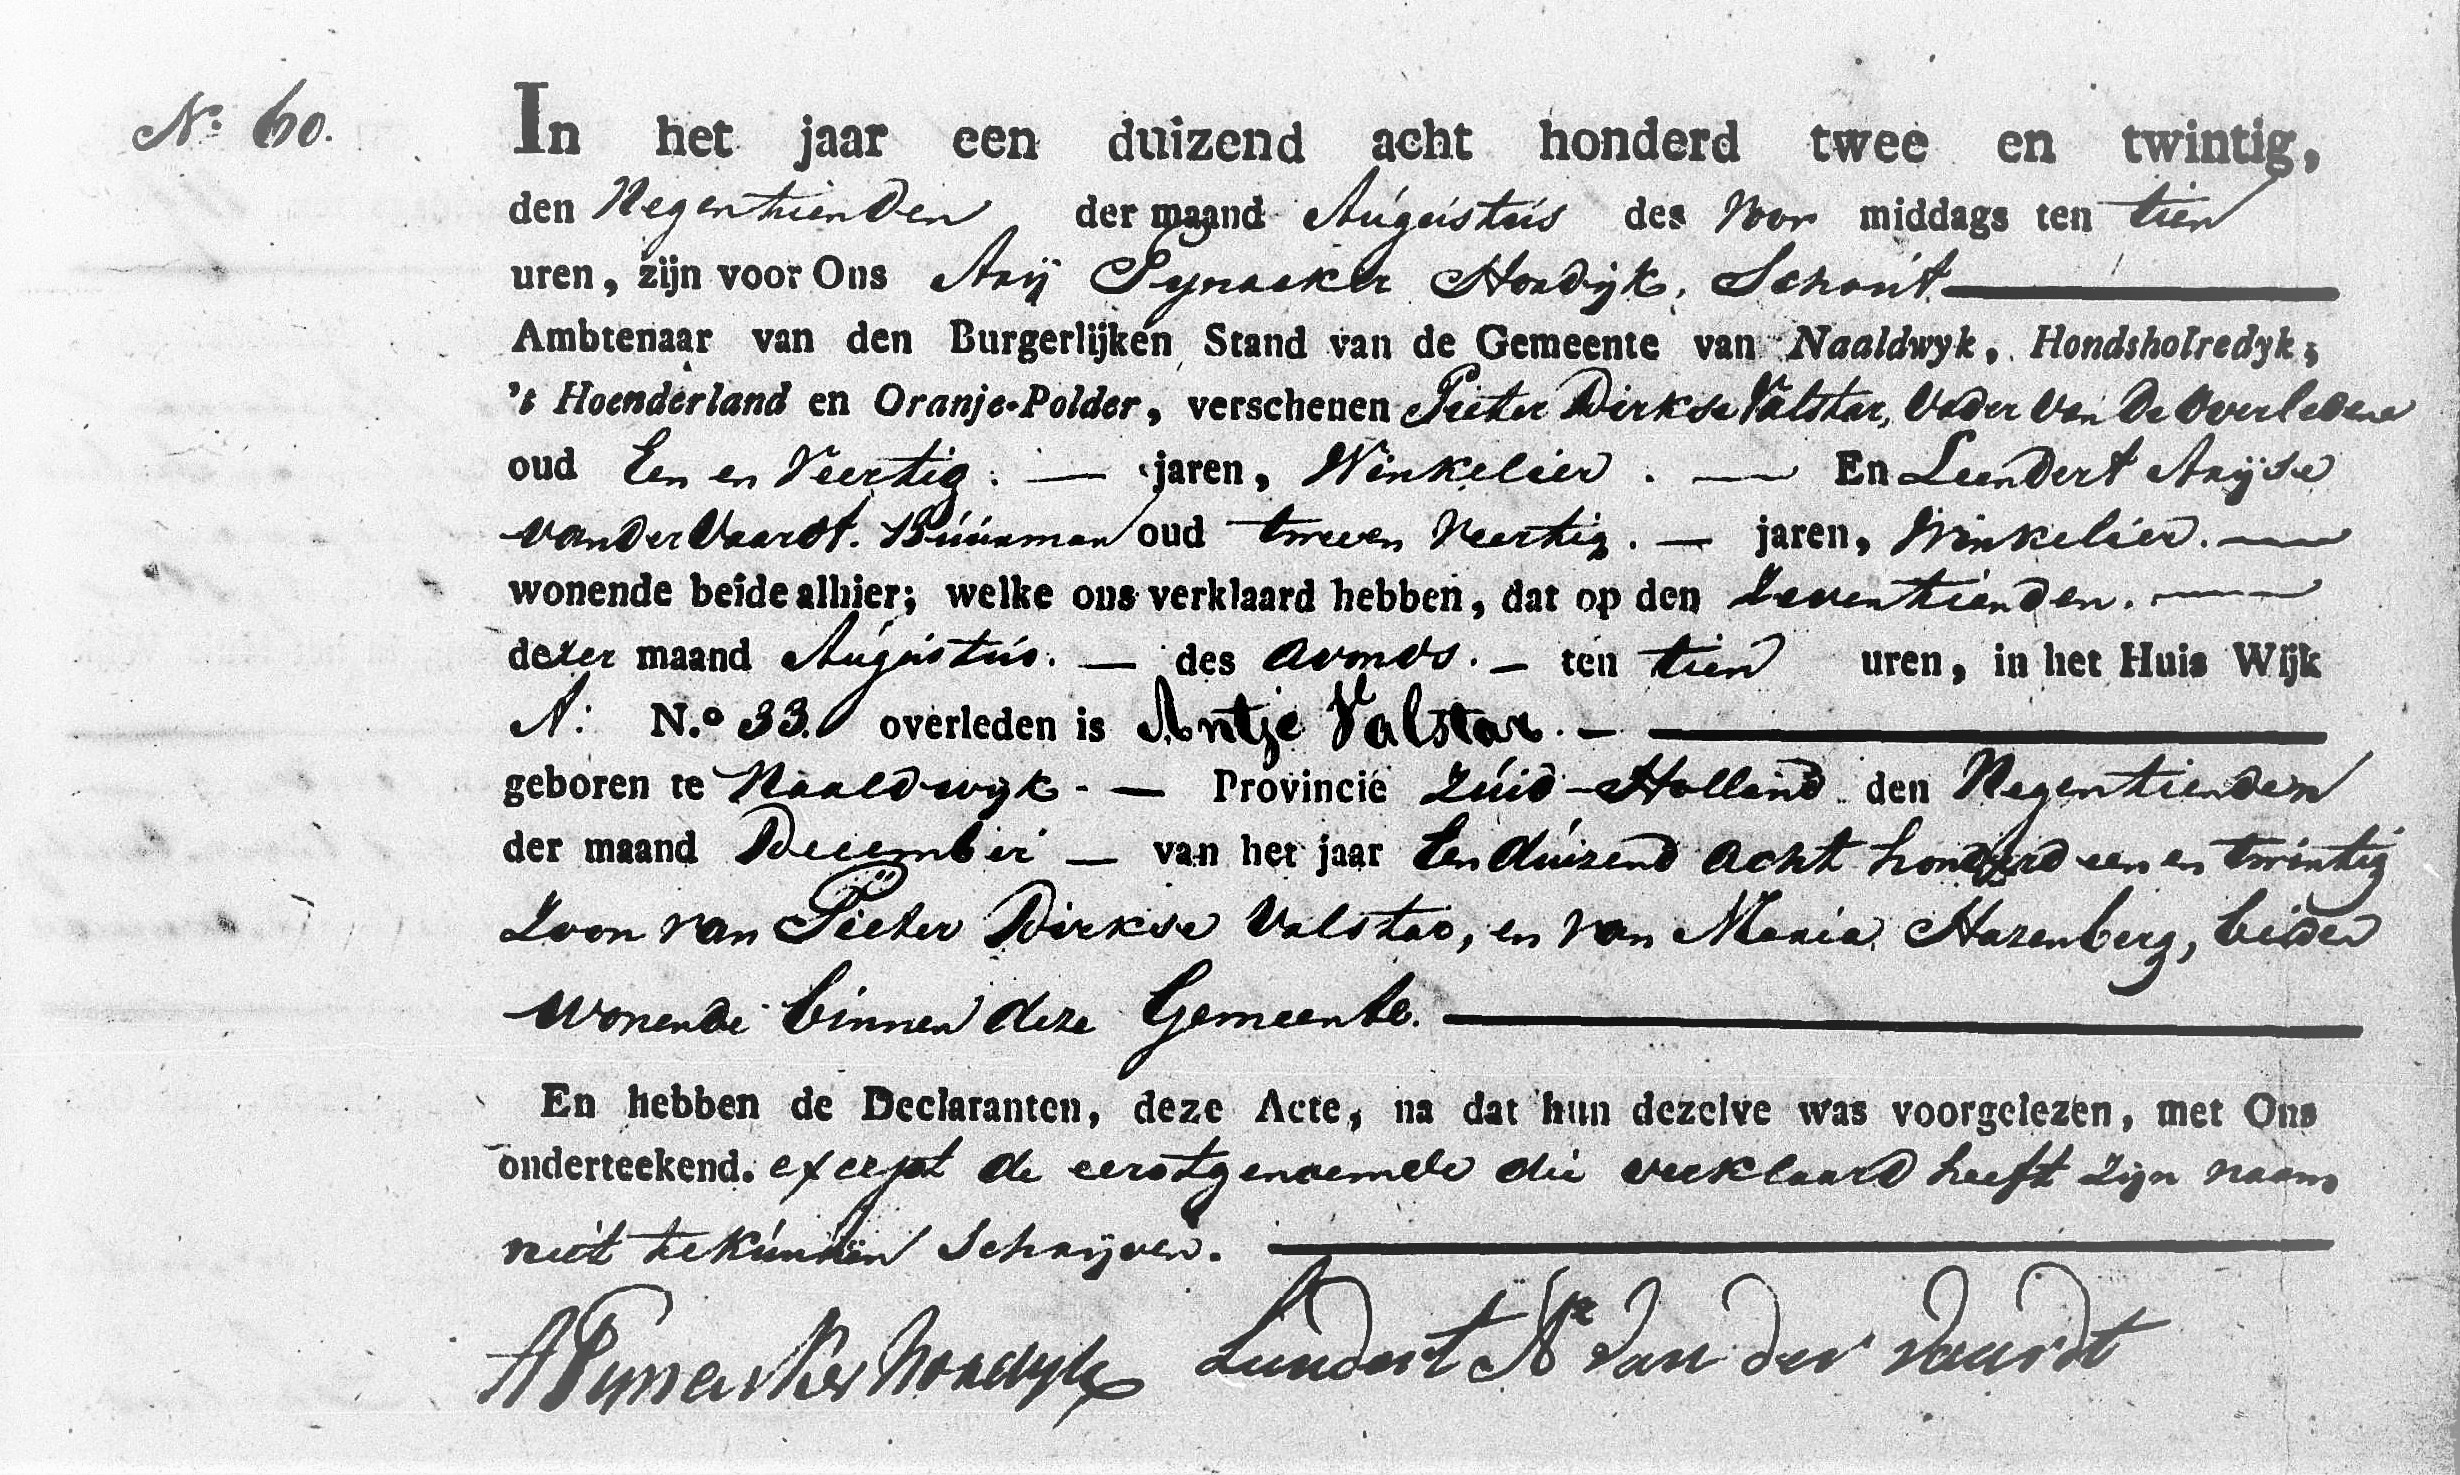 No: 60.
In het jaar een duizend acht honderd twee en twintig,
den Negentienden der maand Augustus des Voor middags ten tien
uren, zijn voor Ons Arij Pynacker Hordijk, Schout
Ambtenaar van den Burgerlijken Stand van de Gemeente van Naaldwyk, Hondsholredyk,
's Hoenderland en Oranje-Polder, verschenen Pieter Dirkse Valstar, Vader van de Overledene
oud Een en Veertig. — jaren, Winkelier. — En Leendert Arijse
van der Vaardt. Buurman oud twee en Veertig. — jaren, Winkelier. —
wonende beide alhier; welke ons verklaard hebben, dat op den Zeventienden. —
dezer maand Augustus. — des avonds. — ten tien uren, in het Huis Wijk
A: N.o 33. overleden is Antje Valstar. —
geboren te Naaldwyk. — Provincie Zuid-Holland den Negentienden
der maand December — van het jaar Een duizend acht honderd een en twintig
Zoon van Pieter Dirkse Valstar, en van Maria Hazenberg, beiden
wonende binnen deze Gemeente.
En hebben de Declaranten, deze Acte, na dat hun dezelve was voorgelezen, met Ons
onderteekend. except de eerstgenoemde die verklaard heeft zijn naam
niet te kunnen schrijven.
A Pynacker Hordyk Leendert Ar van der Vaardt